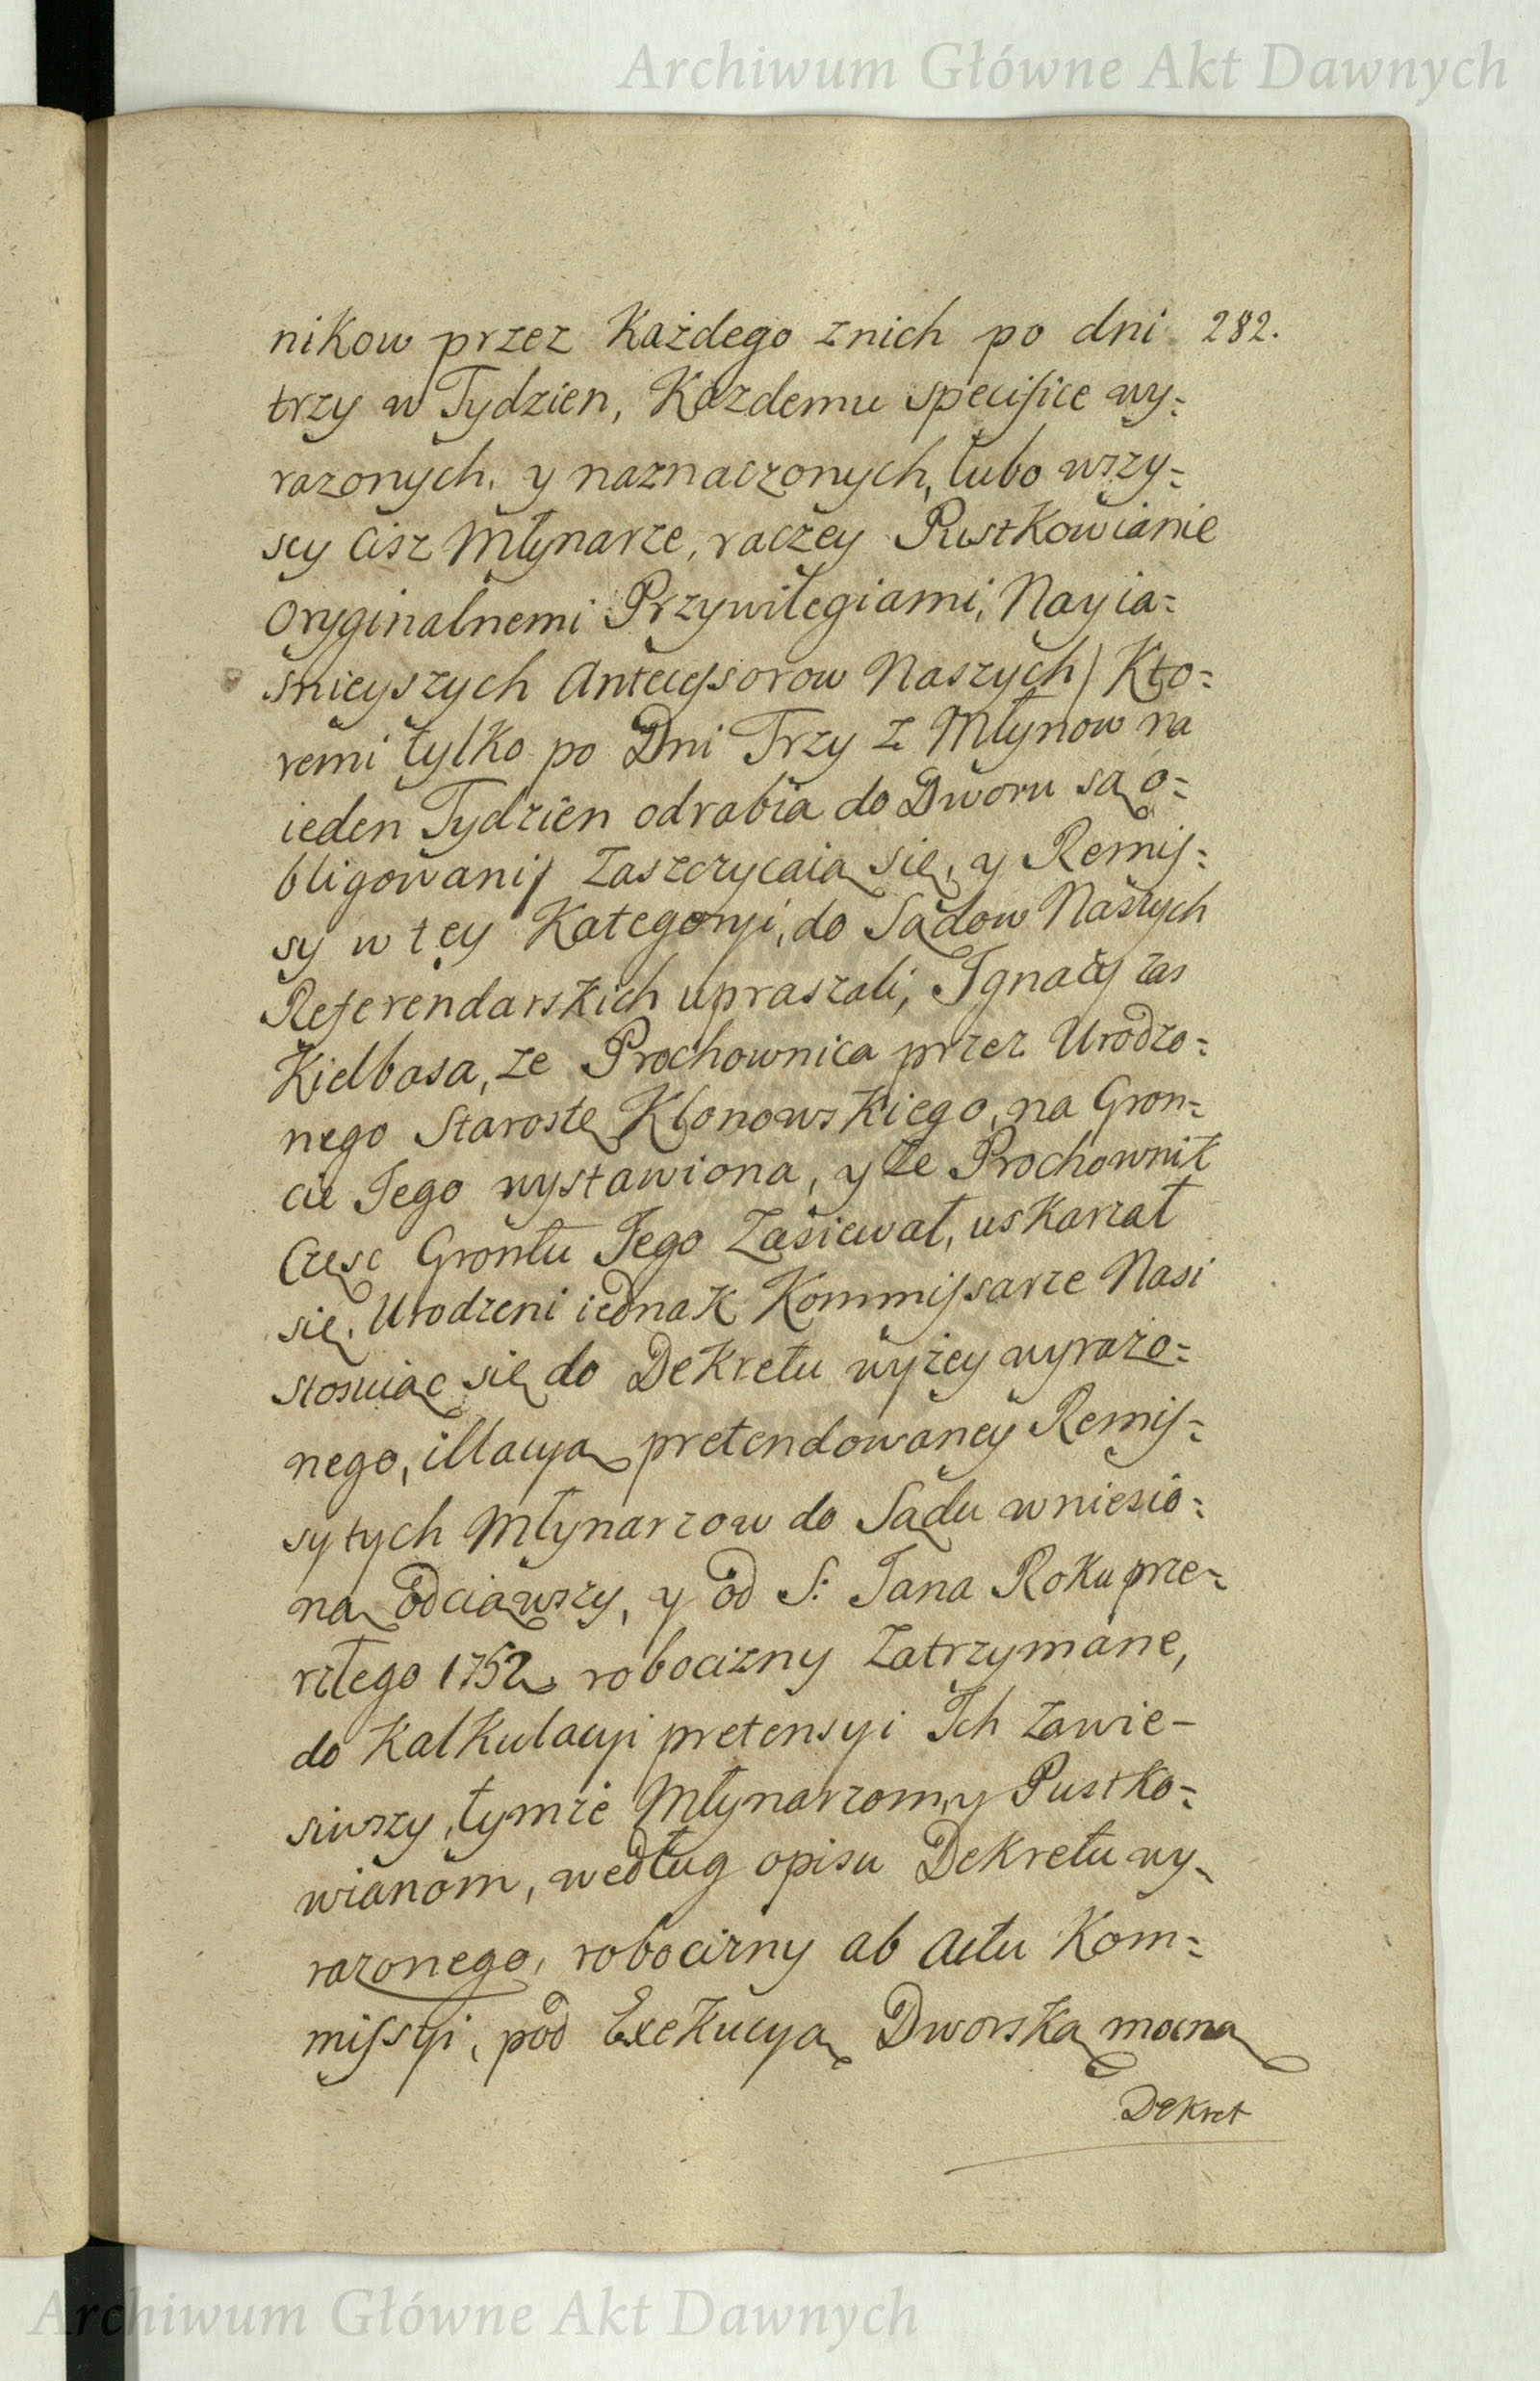 Archiwum Główne Akt Dawnych
nikow przez Każdego znich po dni 282.
trzy w Tydzien, Kazdemu specifice wy=
razonych. y naznaczonych, lubo wszy=
scy cisz Młynarze, raczey Pustkowianie
Oryginalnemi Przywilegiami, Nayia=
snieyszych Antecessorow Naszych) Kto=
remi tylko po Dni Trzy z Młynow na
ieden Tydzien odrabia do Dworu są o=
bligowani/ Zaszczycaią się, y Remis=
sy w tey Kategoryi, do Sądow Naszych
Referendarskich upraszali, Ignacy zas
Kielbasa, ze Prochownica przez Urodzo=
nego Starostę Klonowskiego, na Gron=
cie Jego wystawiona, y ze Prochownik
Częsc Grontu Jego Zasiewał, uskarzał
się. Urodzeni iednak Kommissarze Nasi
stosuiąc się do Dekretu wyżey wyrażo=
nego, illacyą pretendowaney Remis=
sy tych Młynarzow do Sądu wniesio=
ną odciąwszy, y od S: Jana Roku prze=
szłego 1752. robocizny Zatrzymane,
do Kalkulacyi pretensyi Ich Zawie-
siwszy, tymże Młynarzom, y Pustko=
wianom, według opisu Dekretu wy=
razonego, robocizny ab actu Kom=
missyi, pod Exekucyą Dworską mocną
Dekret
Archiwum Główne Akt Dawnych